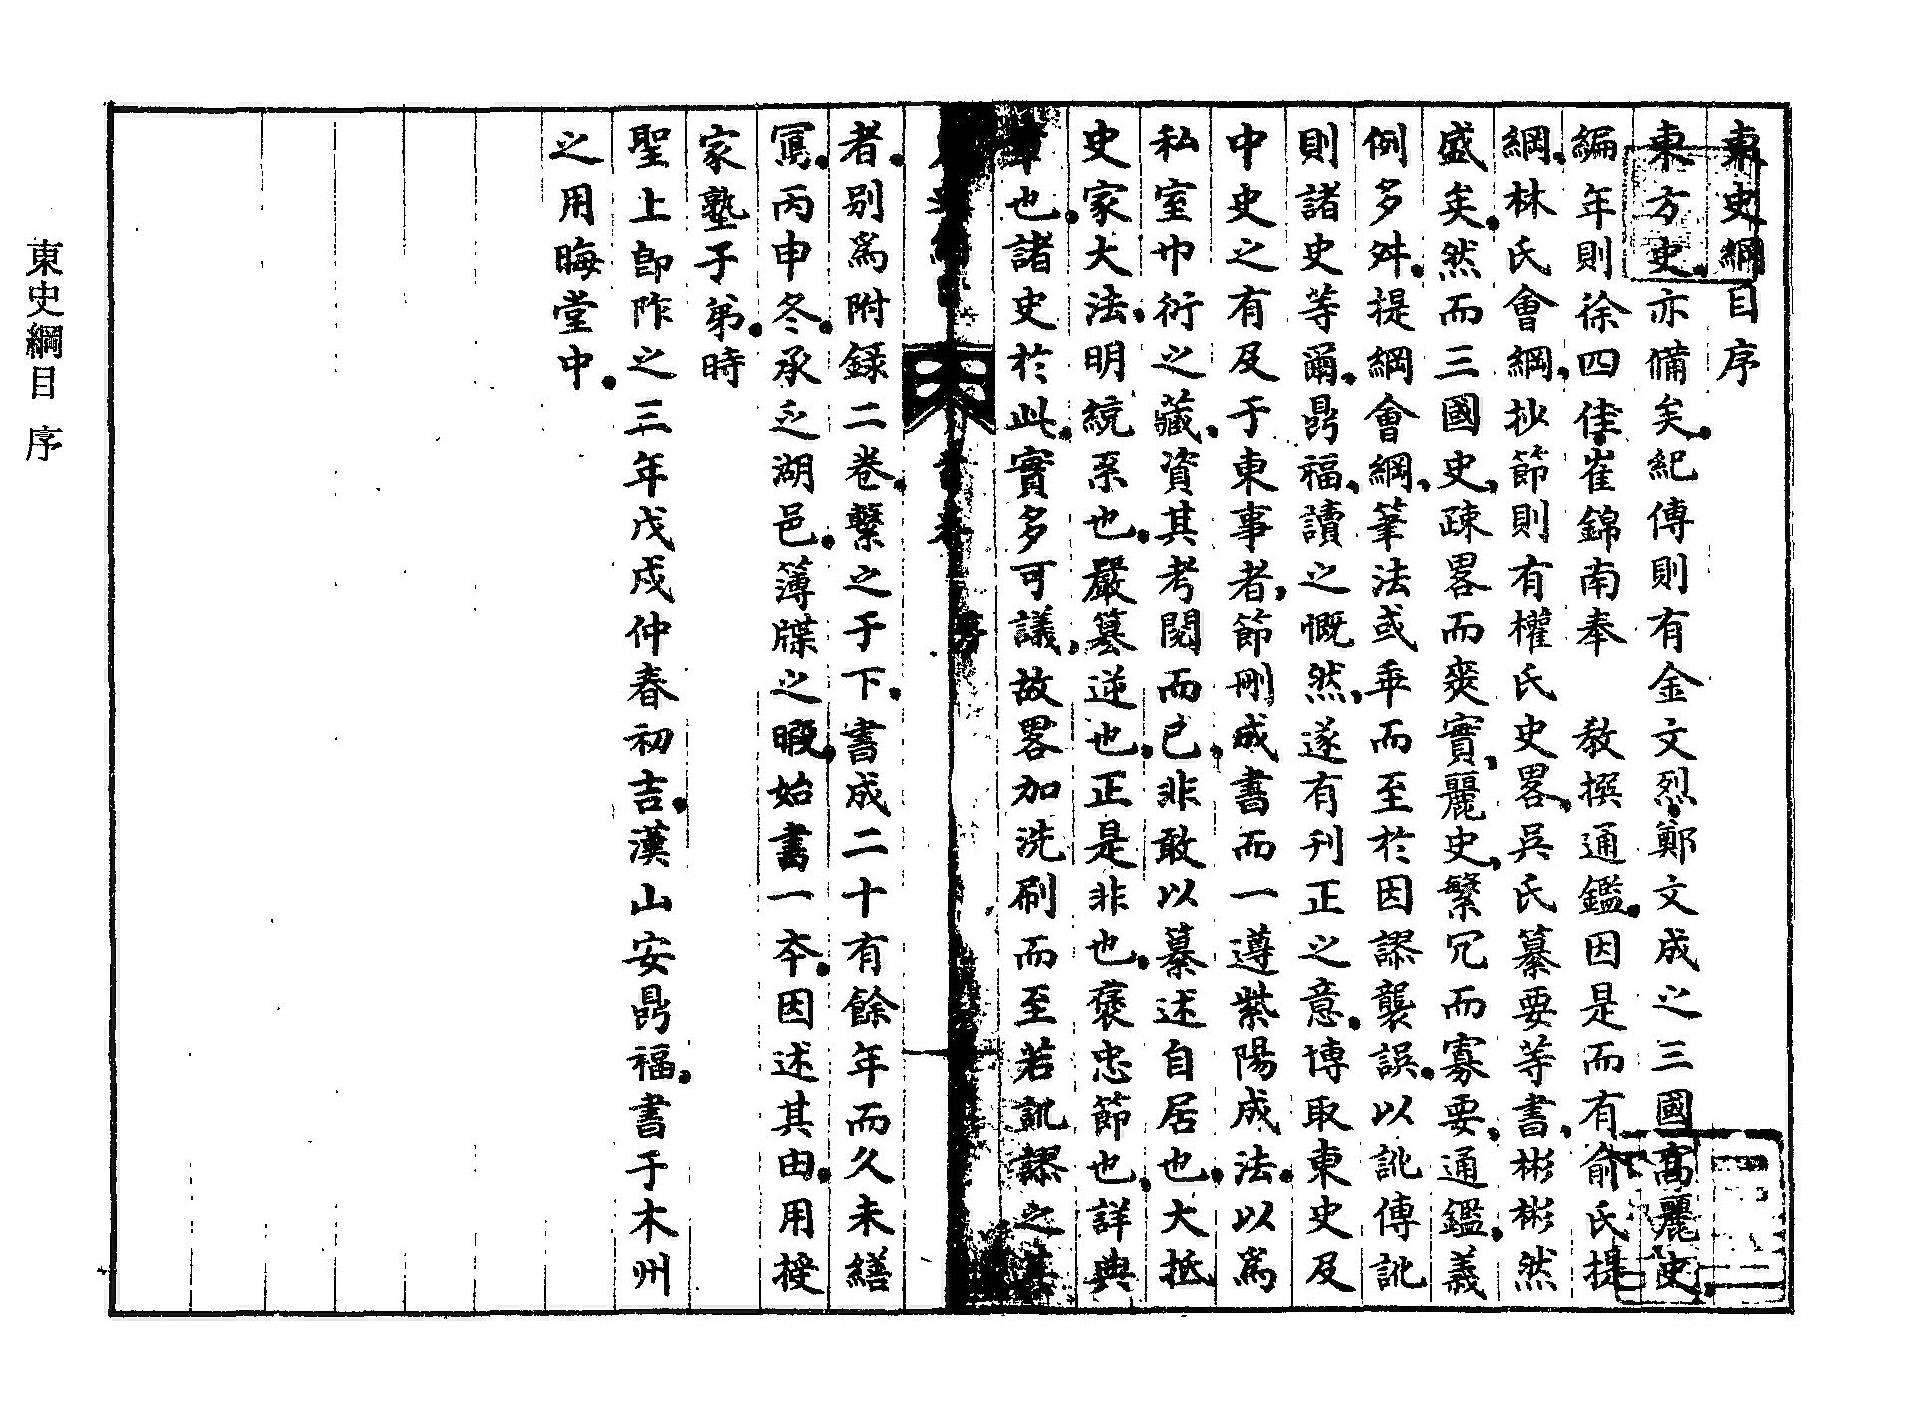 東史綱目序
東方史亦備矣紀傳則有金文烈鄭文成之三國高麗史
編年則徐四佳崔錦南奉　敎撰通鑑因是而有俞氏提
綱林氏會綱抄節則有權氏史畧吳氏纂要等書彬彬然
盛矣然而三國史疎畧而爽實麗史繁冗而寡要通鑑義
例多舛提綱會綱筆法或乖而至於因謬襲誤以訛傳訛
則諸史等爾鼎福讀之慨然遂有刊正之意博取東史及
中史之有及于東事者節刪成書而一遵紫陽成法以爲
私室巾衍之藏資其考閱而已非敢以纂述自居也大抵
史家大法明統系也嚴簒逆也正是非也褒忠節也詳典
章也諸史於此實多可議故畧加洗刷而至若訛謬之甚
者别爲附録二卷繫之于下書成二十有餘年而久未繕
寫丙申冬承乏湖邑簿牒之暇始書一夲因述其由用授
家塾子弟時
聖上卽阼之三年戊戌仲春初吉漢山安鼎福書于木州
之用晦堂中
東史綱目 序